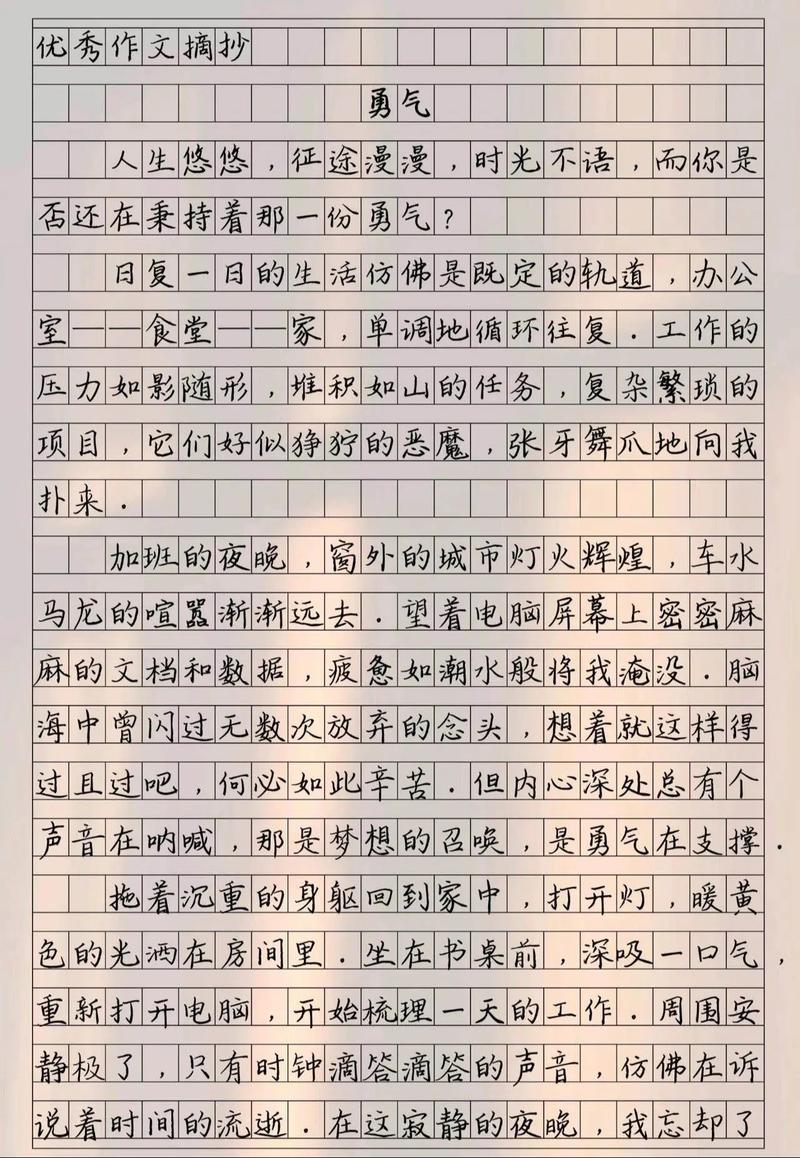 优秀作文摘抄
勇气
人生悠悠，征途漫漫，时光不语，而你是
否还在秉持着那一份勇气？
日复一日的生活仿佛是既定的轨道，办公
室——食堂——家，单调地循环往复．工作的
压力如影随形，堆积如山的任务，复杂繁琐的
项目，它们好似狰狞的恶魔，张牙舞爪地向我
扑来．
加班的夜晚，窗外的城市灯火辉煌，车水
马龙的喧嚣渐渐远去．望着电脑屏幕上密密麻
麻的文档和数据，疲惫如潮水般将我淹没．脑
海中曾闪过无数次放弃的念头，想着就这样得
过且过吧，何必如此辛苦．但内心深处总有个
声音在呐喊，那是梦想的召唤，是勇气在支撑．
拖着沉重的身躯回到家中，打开灯，暖黄
色的光洒在房间里．坐在书桌前，深吸一口气，
重新打开电脑，开始梳理一天的工作．周围安
静极了，只有时钟滴答滴答的声音，仿佛在诉
说着时间的流逝．在这寂静的夜晚，我忘却了